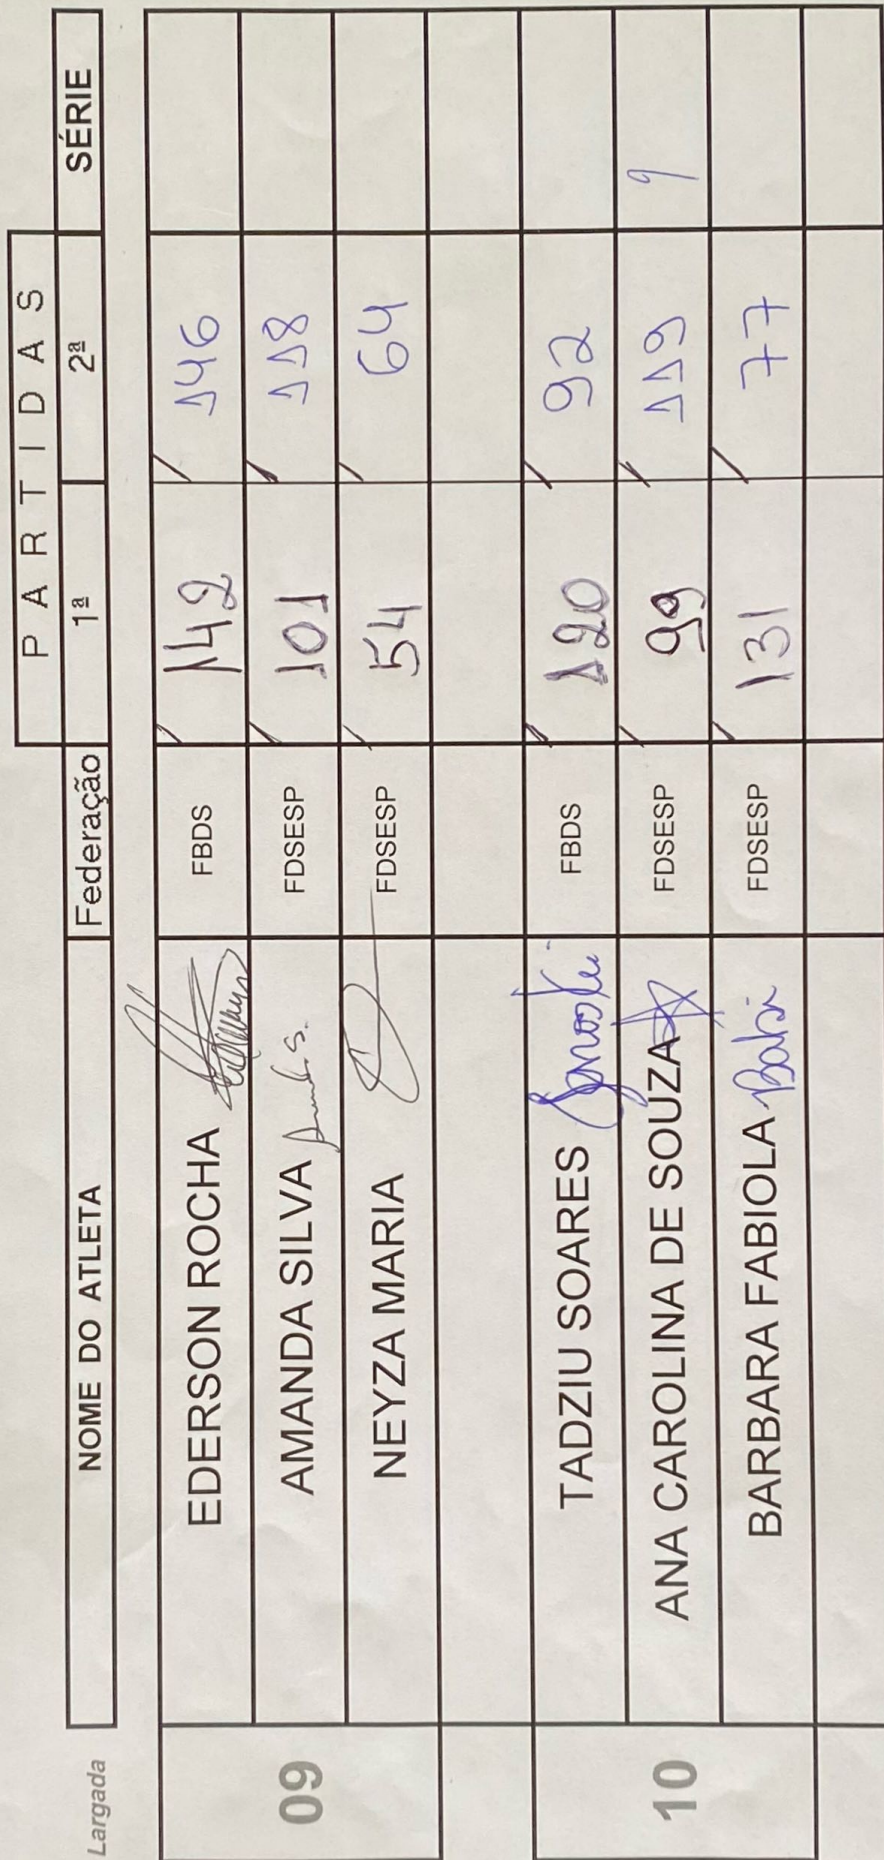 PARTIDAS
Largada NOME DO ATLETA Federação 1ª 2ª SÉRIE
09
EDERSON ROCHA FBDS 142 146
AMANDA SILVA Amanda S. FDSESP 101 118
NEYZA MARIA FDSESP 54 64
10
TADZIU SOARES FBDS 120 92
ANA CAROLINA DE SOUZA FDSESP 99 119 9
BARBARA FABIOLA Babi FDSESP 131 77